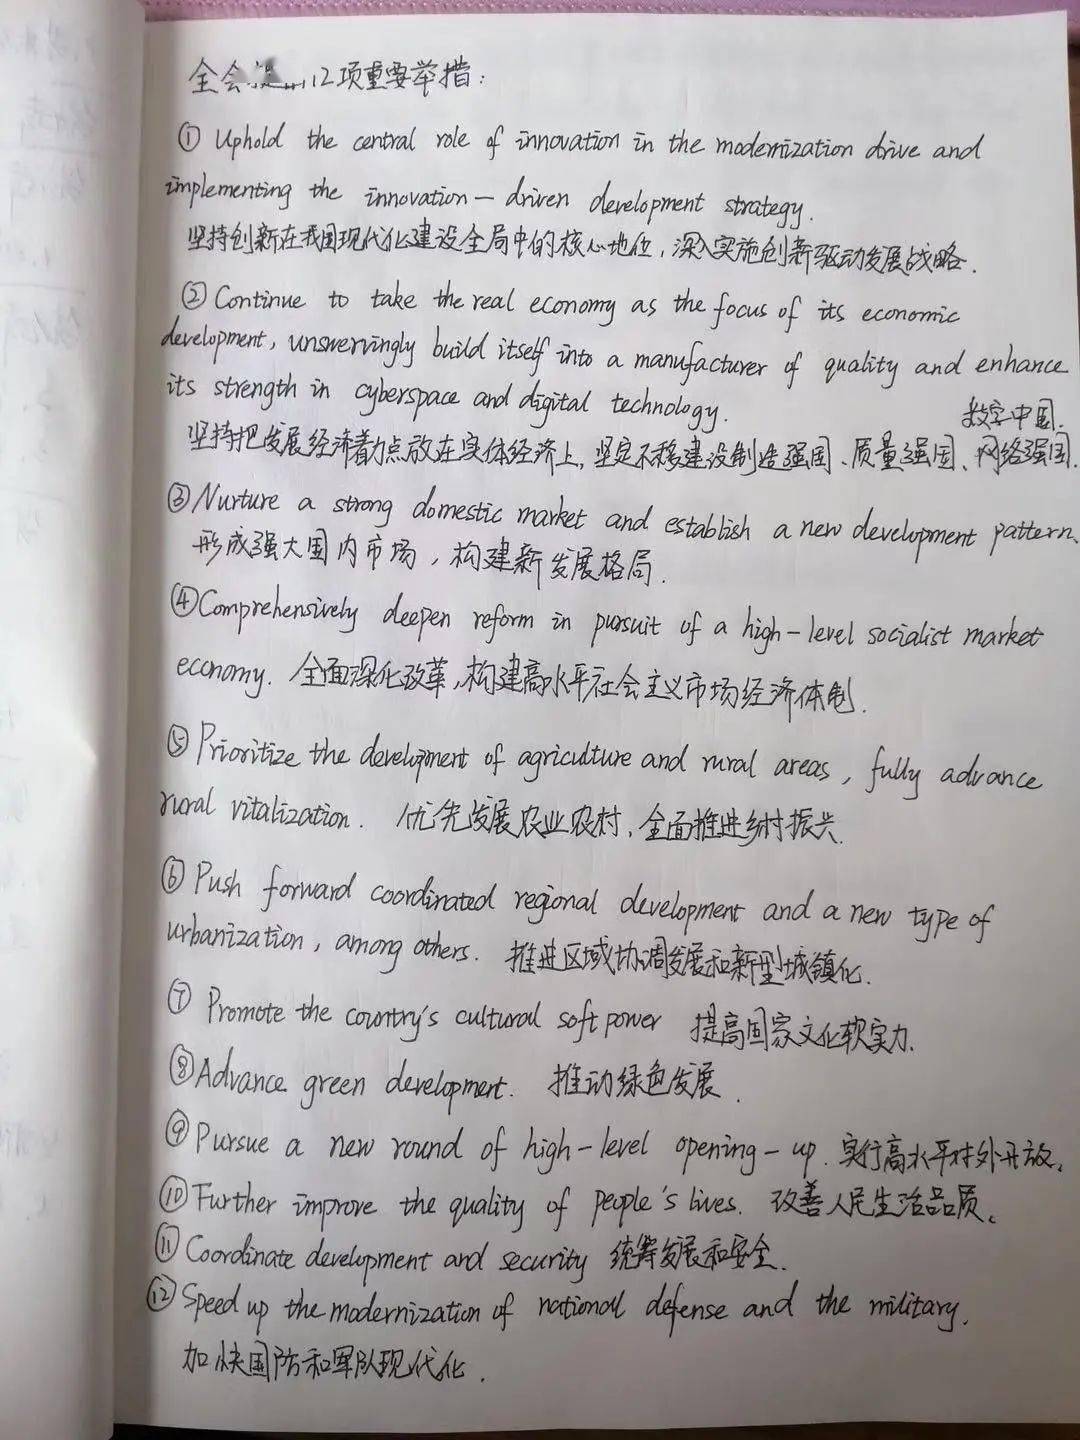 全会 12项重要举措:
① Uphold the central role of innovation in the modernization drive and
implementing the innovation — driven development strategy.
坚持创新在我国现代化建设全局中的核心地位,深入实施创新驱动发展战略.
② Continue to take the real economy as the focus of its economic
development, unswervingly build itself into a manufacturer of quality and enhance
its strength in cyberspace and digital technology.
数字中国.
坚持把发展经济着力点放在实体经济上,坚定不移建设制造强国、质量强国、网络强国.
③ Nurture a strong domestic market and establish a new development pattern.
形成强大国内市场,构建新发展格局.
④ Comprehensively deepen reform in pursuit of a high-level socialist market
economy. 全面深化改革,构建高水平社会主义市场经济体制.
⑤ Prioritize the development of agriculture and rural areas, fully advance
rural vitalization. 优先发展农业农村,全面推进乡村振兴.
⑥ Push forward coordinated regional development and a new type of
urbanization, among others. 推进区域协调发展和新型城镇化.
⑦ Promote the country's cultural soft power 提高国家文化软实力.
⑧ Advance green development. 推动绿色发展.
⑨ Pursue a new round of high-level opening-up. 实行高水平对外开放.
⑩ Further improve the quality of people's lives. 改善人民生活品质.
⑪ Coordinate development and security 统筹发展和安全.
⑫ Speed up the modernization of national defense and the military.
加快国防和军队现代化.